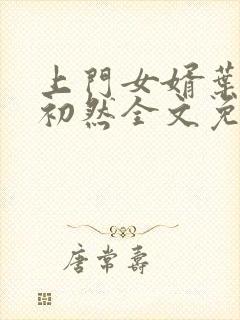 上門女婿葉
初然全文免
唐常壽